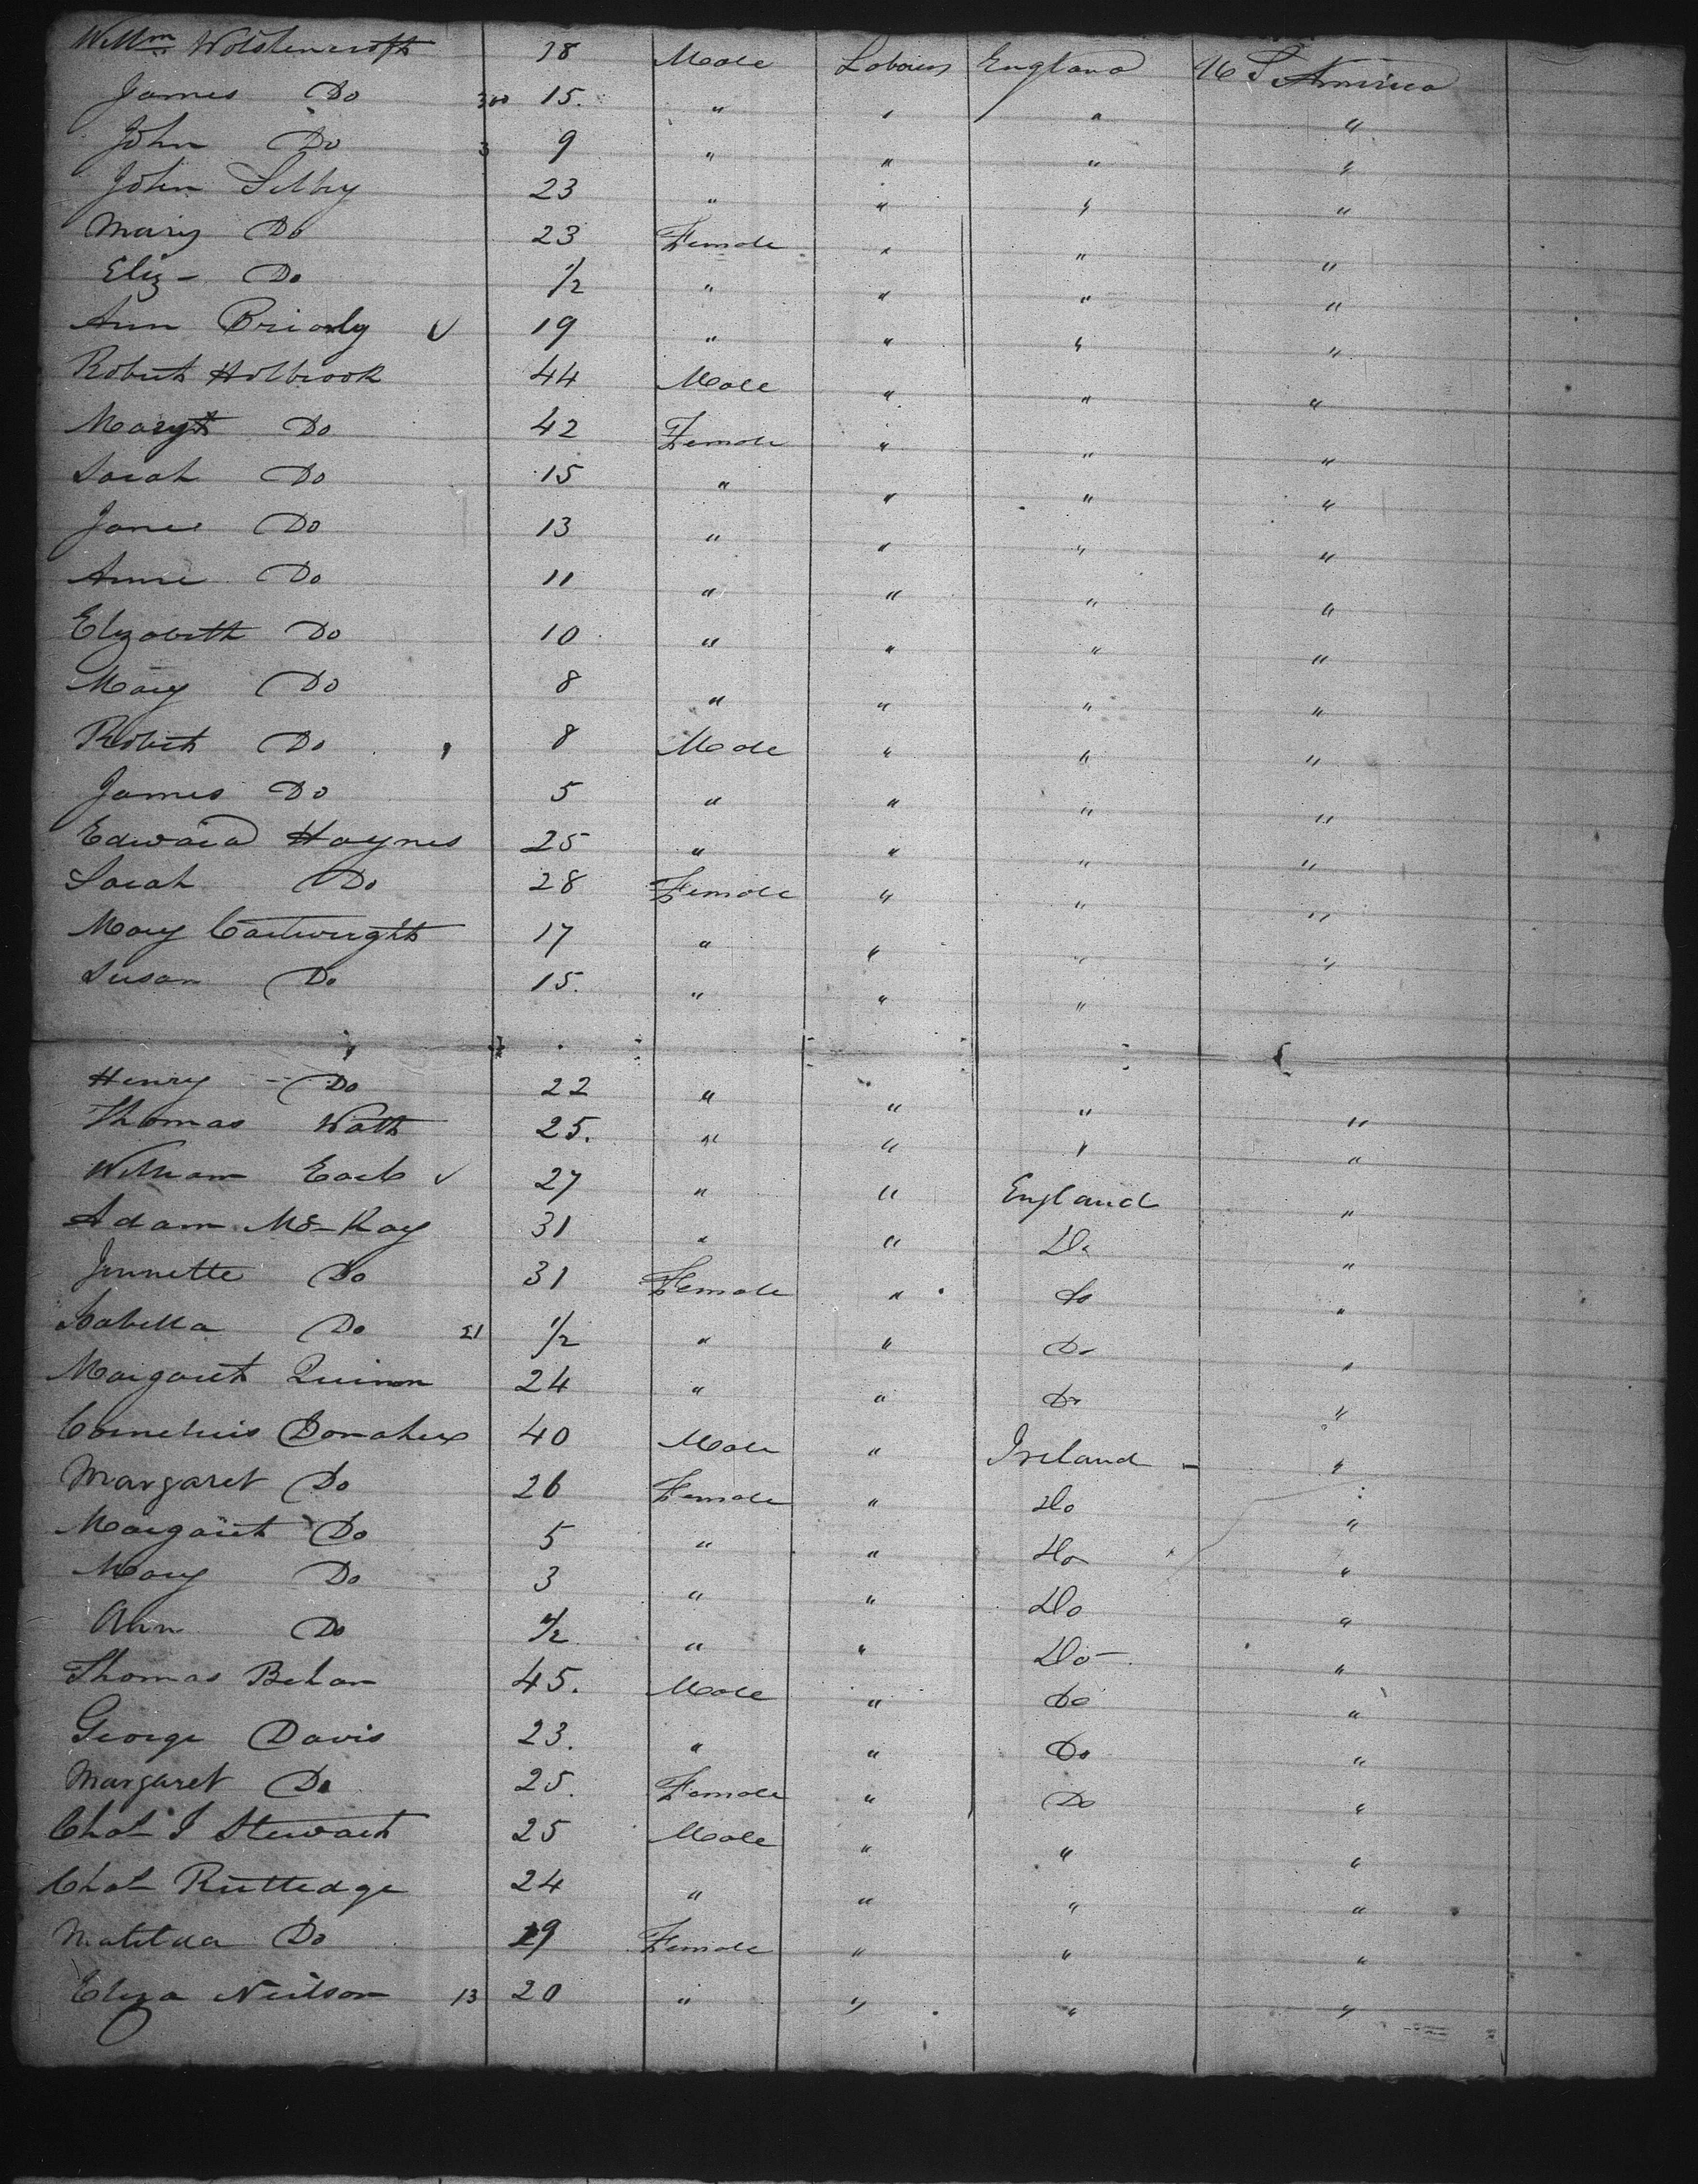 Willm Wolstencroft 38 Male Labourer England U S America
James Do 300 15. " " " "
John Do 3 9 " " " "
John Selby 23 " " " "
Mary Do 23 Female " " "
Eliz - Do 1/2 " " " "
Ann Brierly ✓ 19 " " " "
Robert Holbrook 44 Male " " "
Margt Do 42 Female " " "
Sarah Do 15 " " " "
Jane Do 13 " " " "
Anne Do 11 " " " "
Elizabeth Do 10 " " " "
Mary Do 8 " " " "
Robert Do 8 Male " " "
James Do 5 " " " "
Edward Haynes 25 " " " "
Sarah Do 28 Female " " "
Mary Cartwright 17 " " " "
Susan Do 15. " " "
Henry - Do 22 " " " "
Thomas Watt 25. " " " "
William Earl ✓ 27 " " England "
Adam Mc-Kay 31 " " Do "
Jennette Do 31 Female " Do "
Isabella Do 21 1/2 " " Do "
Margaret Quinn 24 " " Do "
Cornelius Donahue 40 Male " Ireland - "
Margaret Do 26 Female " Do "
Margaret Do 5 " " Do "
Mary Do 3 " " Do "
Ann Do 1/2 " " Do - "
Thomas Behan 45. Male " Do "
George Davis 23. " " Do "
Margaret Do 25. Female " Do "
Chas J Stewart 25 Male " " "
Chas Rutledge 24 " " " "
Matilda Do 19 Female " " "
Eliza Neilson 13 20 " " " "